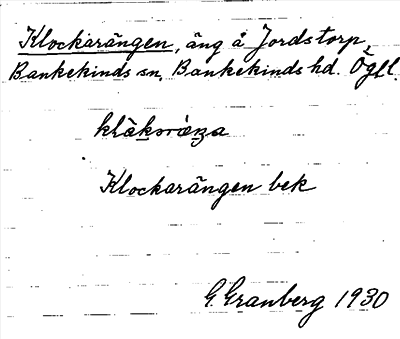 Klockarängen, äng å Jordstorp,
Bankekinds sn. Bankekinds hd. Ögtl.
Klockarängen bek
G. Granberg 1930